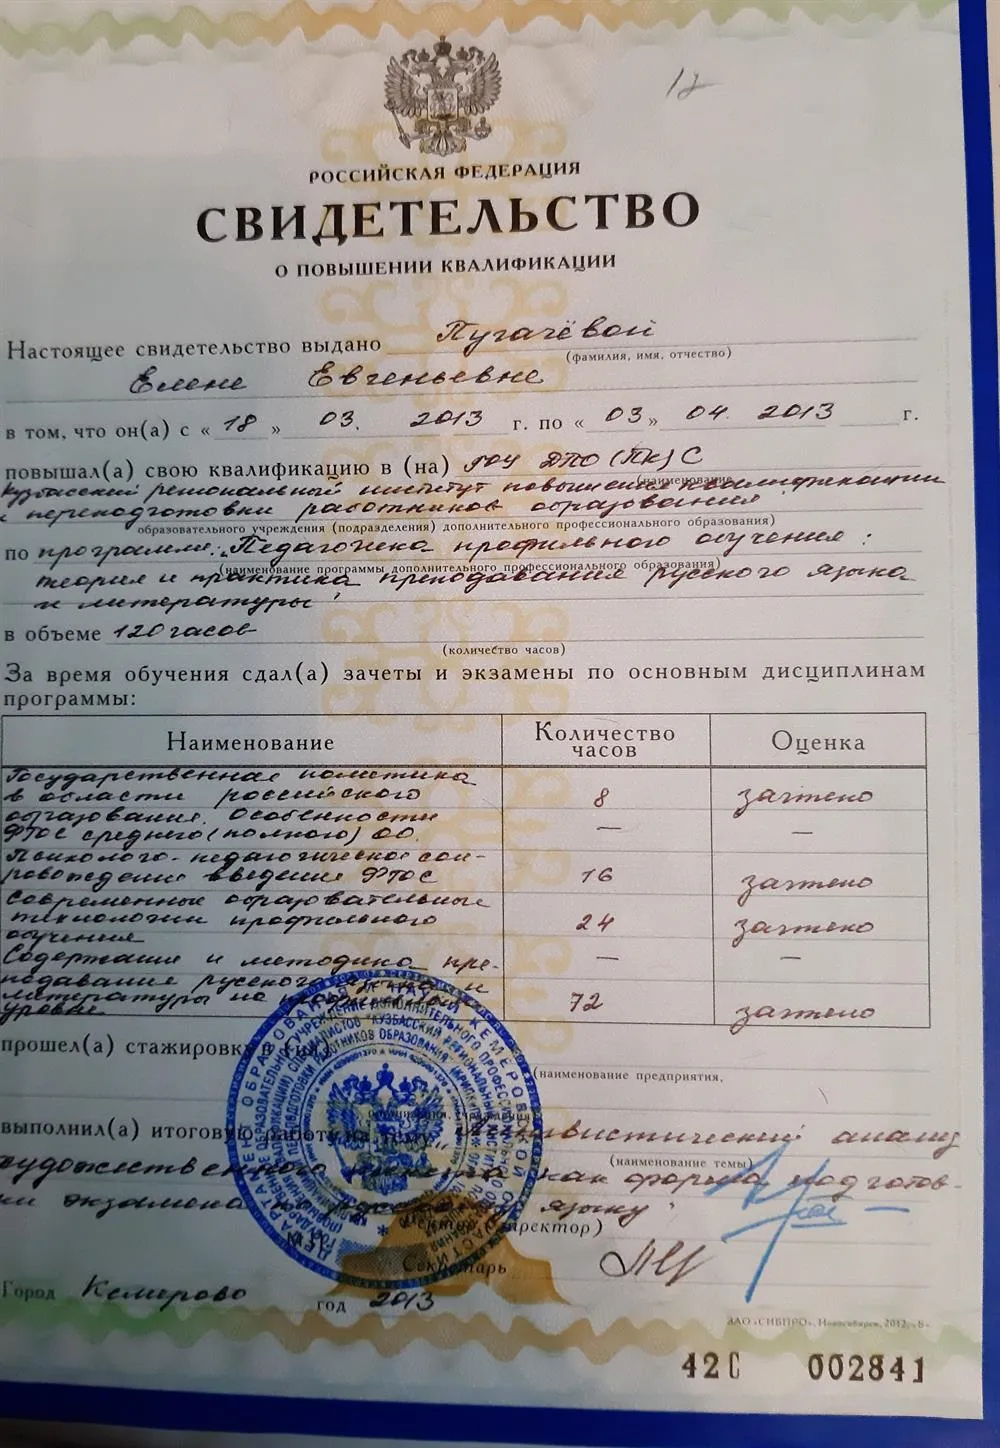 12
РОССИЙСКАЯ ФЕДЕРАЦИЯ
СВИДЕТЕЛЬСТВО
О ПОВЫШЕНИИ КВАЛИФИКАЦИИ
Настоящее свидетельство выдано Пугачёвой
(фамилия, имя, отчество)
Елене Евгеньевне
в том, что он(а) с « 18 » 03. 2013 г. по « 03 » 04. 2013 г.
повышал(а) свою квалификацию в (на) ГОУ ДПО (ПК) С
(наименование
Кузбасский региональный институт повышения квалификации
и переподготовки работников образования
образовательного учреждения (подразделения) дополнительного профессионального образования)
по программе: „Педагогика профильного обучения :
(наименование программы дополнительного профессионального образования)
теория и практика преподавания русского языка
и литературы"
в объеме 120 часов
(количество часов)
За время обучения сдал(а) зачеты и экзамены по основным дисциплинам
программы:
Наименование Количество часов Оценка
Государственная политика
в области российского 8 зачтено
образования. Особенности
ФГОС среднего (полного) ОО. — —
Психолого-педагогическое соп-
ровождение введения ФГОС 16 зачтено
Современные образовательные
технологии профильного 24 зачтено
обучения
Содержание и методика пре- — —
подавания русского языка и
литературы на профильном 72 зачтено
уровне
прошел(а) стажировку в (на)
(наименование предприятия,
организации, учреждения)
выполнил(а) итоговую работу на тему „Лингвистический анализ
(наименование темы)
художественного текста как форма подготов-
ки экзамена по русскому языку"
Ректор (директор)
М.П.
Секретарь
Город Кемерово год 2013
ЗАО «СИБПРО», Новосибирск, 2012, «В»
420 002841